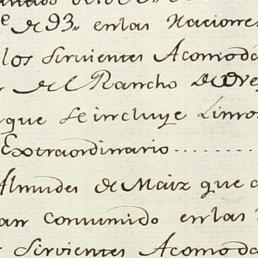 de 93,, en las Raciones
los Sirvientes Acomoda
del Rancho de Ove
que se incluye Limos
Extraordinario
Almudes de Maiz que
an consumido en las
Sirvientes Acomoda